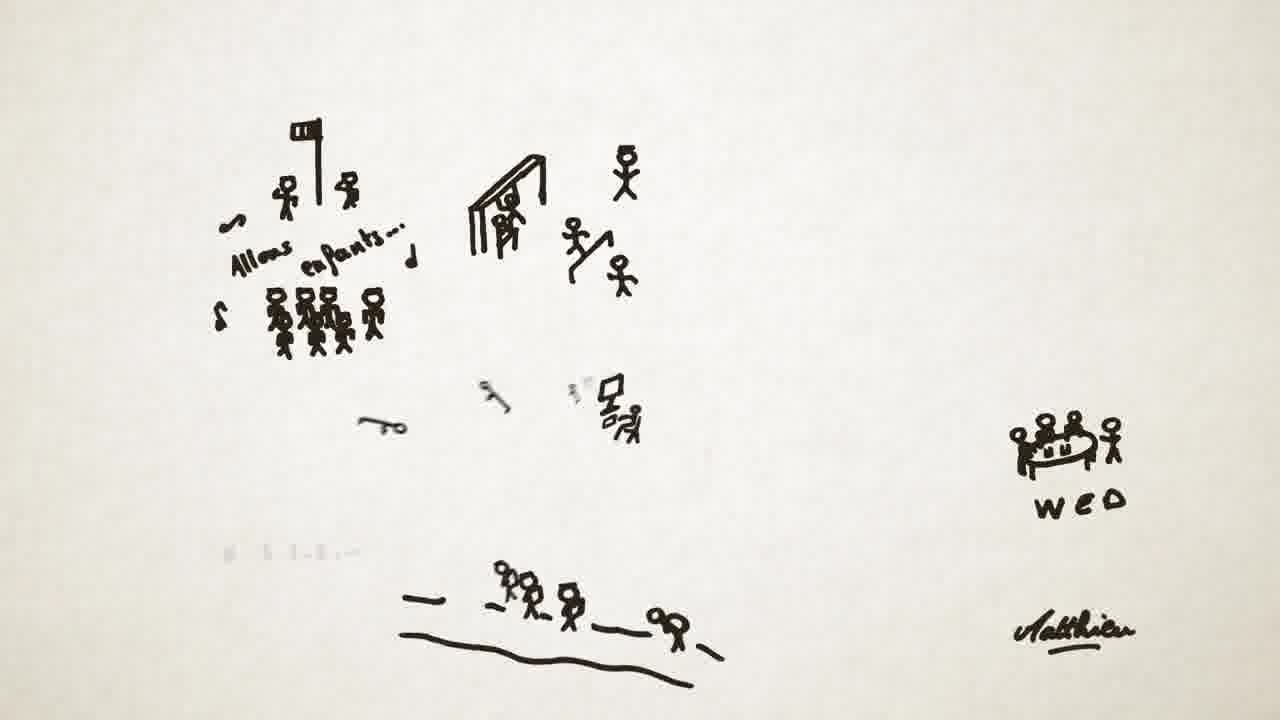 Allons enfants...
WED
Matthieu